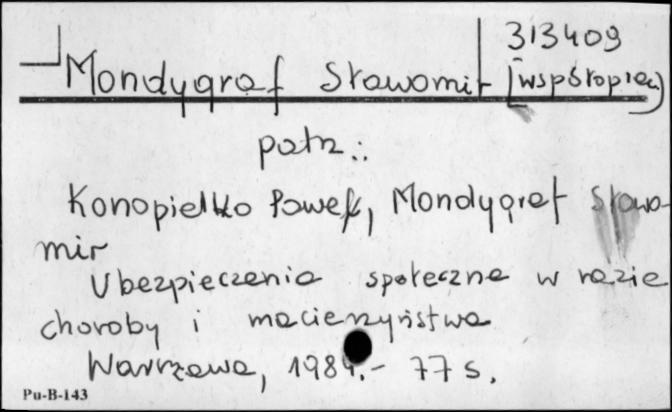 313409
Mondygraf Sławomir [współoprac.]
patrz.:
Konopielko Paweł, Mondygraf Sławo-
mir
Ubezpieczenia społeczne w razie
choroby i macierzyństwa
Warszawa, 1984.- 77 s.
Pu-B-143